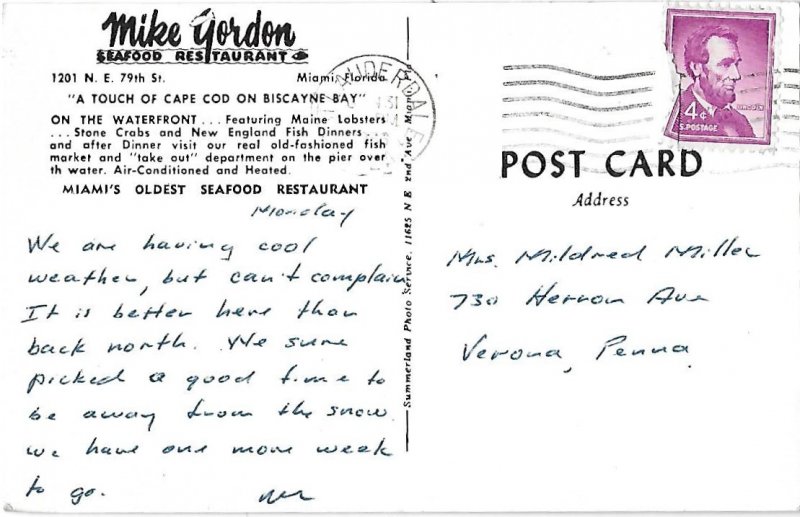 Mike Gordon
SEAFOOD RESTAURANT
1201 N. E. 79th St. Miami, Florida
"A TOUCH OF CAPE COD ON BISCAYNE BAY"
ON THE WATERFRONT . . . Featuring Maine Lobsters
. . . Stone Crabs and New England Fish Dinners . . .
and after Dinner visit our real old-fashioned fish
market and "take out" department on the pier over
th water. Air-Conditioned and Heated.
MIAMI'S OLDEST SEAFOOD RESTAURANT
Monday
We are having cool
weather, but can't complain
It is better here than
back north. We sure
picked a good time to
be away from the snow.
we have one more week
to go.
Summerland Photo Service, 11625 N E 2nd Ave Miami
LAUDERDALE
4¢
LINCOLN
U.S. POSTAGE
POST CARD
Address
Mrs. Mildred Miller
730 Herron Ave
Verona, Penna.